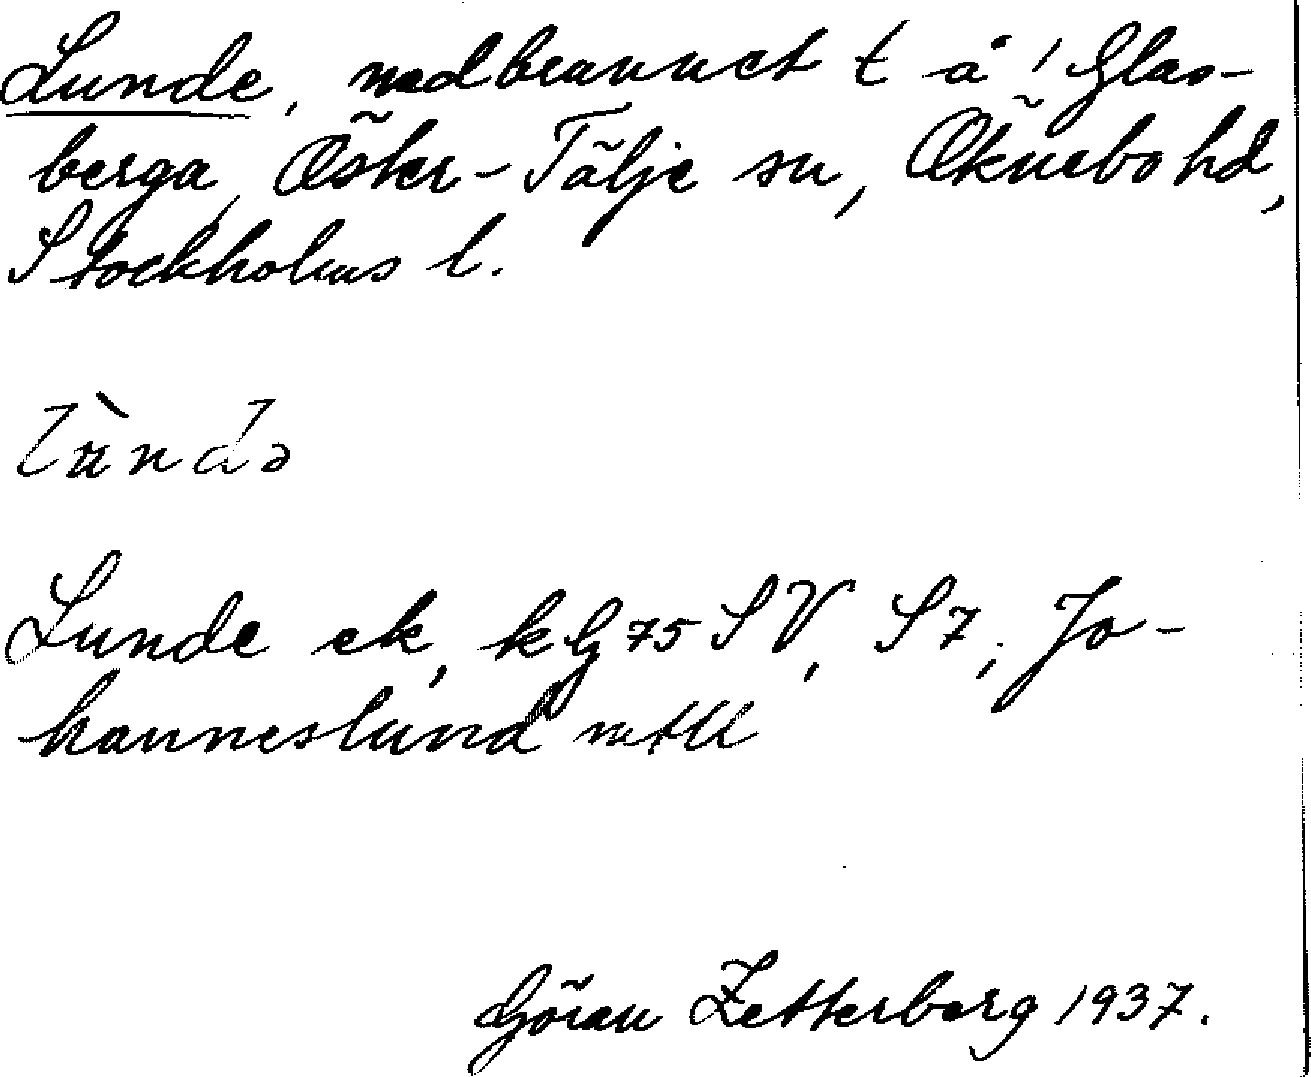 Lunde, nedbrunnet t å ! Glas-
berga, Öster-Tälje sn, Öknebo hd,
Stockholms l.
lùndə
Lunde ek, kbg 75 SV, S 7; Jo-
hanneslund mtll
Göran Zetterberg 1937.